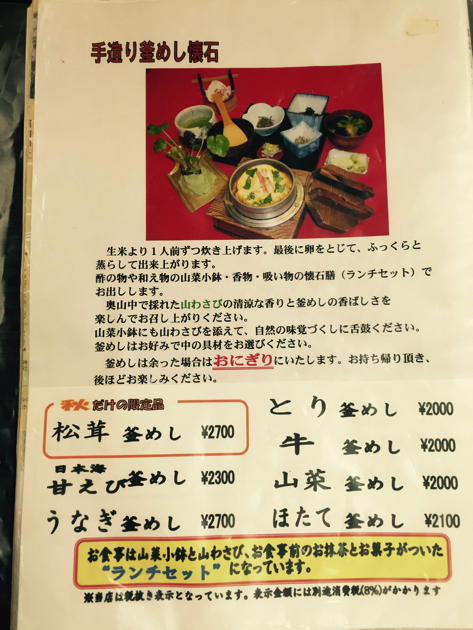 手造り釜めし懐石
生米より1人前ずつ炊き上げます。最後に卵をとじて、ふっくらと
蒸らして出来上がります。
酢の物や和え物の山菜小鉢・香物・吸い物の懐石膳（ランチセット）で
お出しします。
奥山中で採れた山わさびの清涼な香りと釜めしの香ばしさを
楽しんでお召し上がりください。
山菜小鉢にも山わさびを添えて、自然の味覚づくしに舌鼓ください。
釜めしはお好みで中の具材をお選びください。
釜めしは余った場合はおにぎりにいたします。お持ち帰り頂き、
後ほどお楽しみください。
秋だけの限定品
松茸 釜めし ¥2700
日本海
甘えび釜めし ¥2300
うなぎ 釜めし ¥2700
とり 釜めし ¥2000
牛 釜めし ¥2000
山菜 釜めし ¥2000
ほたて 釜めし ¥2100
お食事は山菜小鉢と山わさび、お食事前のお抹茶とお菓子がついた
"ランチセット"になっています。
※当店は税抜き表示となっています。表示金額には別途消費税(8%)がかかります